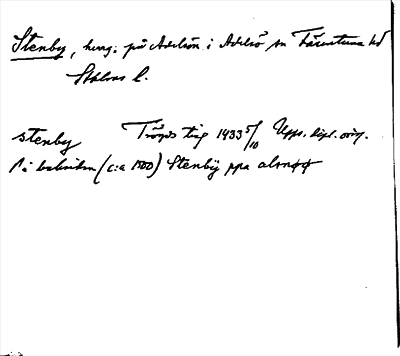 Stenby, herrg. på Adelsön i Adelsö sn Färentuna hd
Sthlms l.
stenby Trögds ting 1433 5/10 Upps. dipl. orig.
På baksidan (c:a 1500) Stenby ppa alsnøø